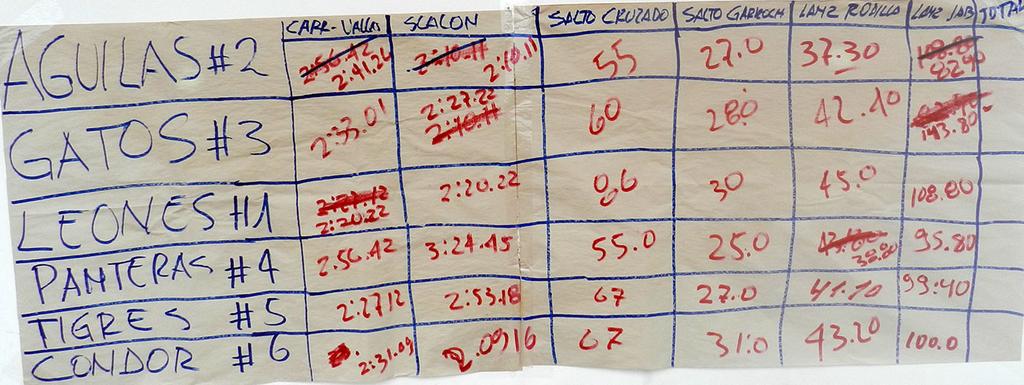 CARR-VALLAS SLALON SALTO CRUZADO SALTO GARROCH LANZ RODILLA LANZ JAB TOTAL
AGUILAS #2 2:56.42 2:41.26 2:10.11 2:10.11 55 27.0 37.30 108.80 82.90
GATOS #3 2:33.01 2:27.22 2:10.11 60 28.0 42.10 143.80
LEONES #1 2:27.12 2:20.22 2:20.22 66 30 45.0 108.80
PANTERAS #4 2:56.42 3:24.45 55.0 25.0 43.60 38.80 95.80
TIGRES #5 2:27.12 2:53.18 67 27.0 41.10 99:40
CONDOR #6 2:31.09 2.0916 67 31.0 43.20 100.0